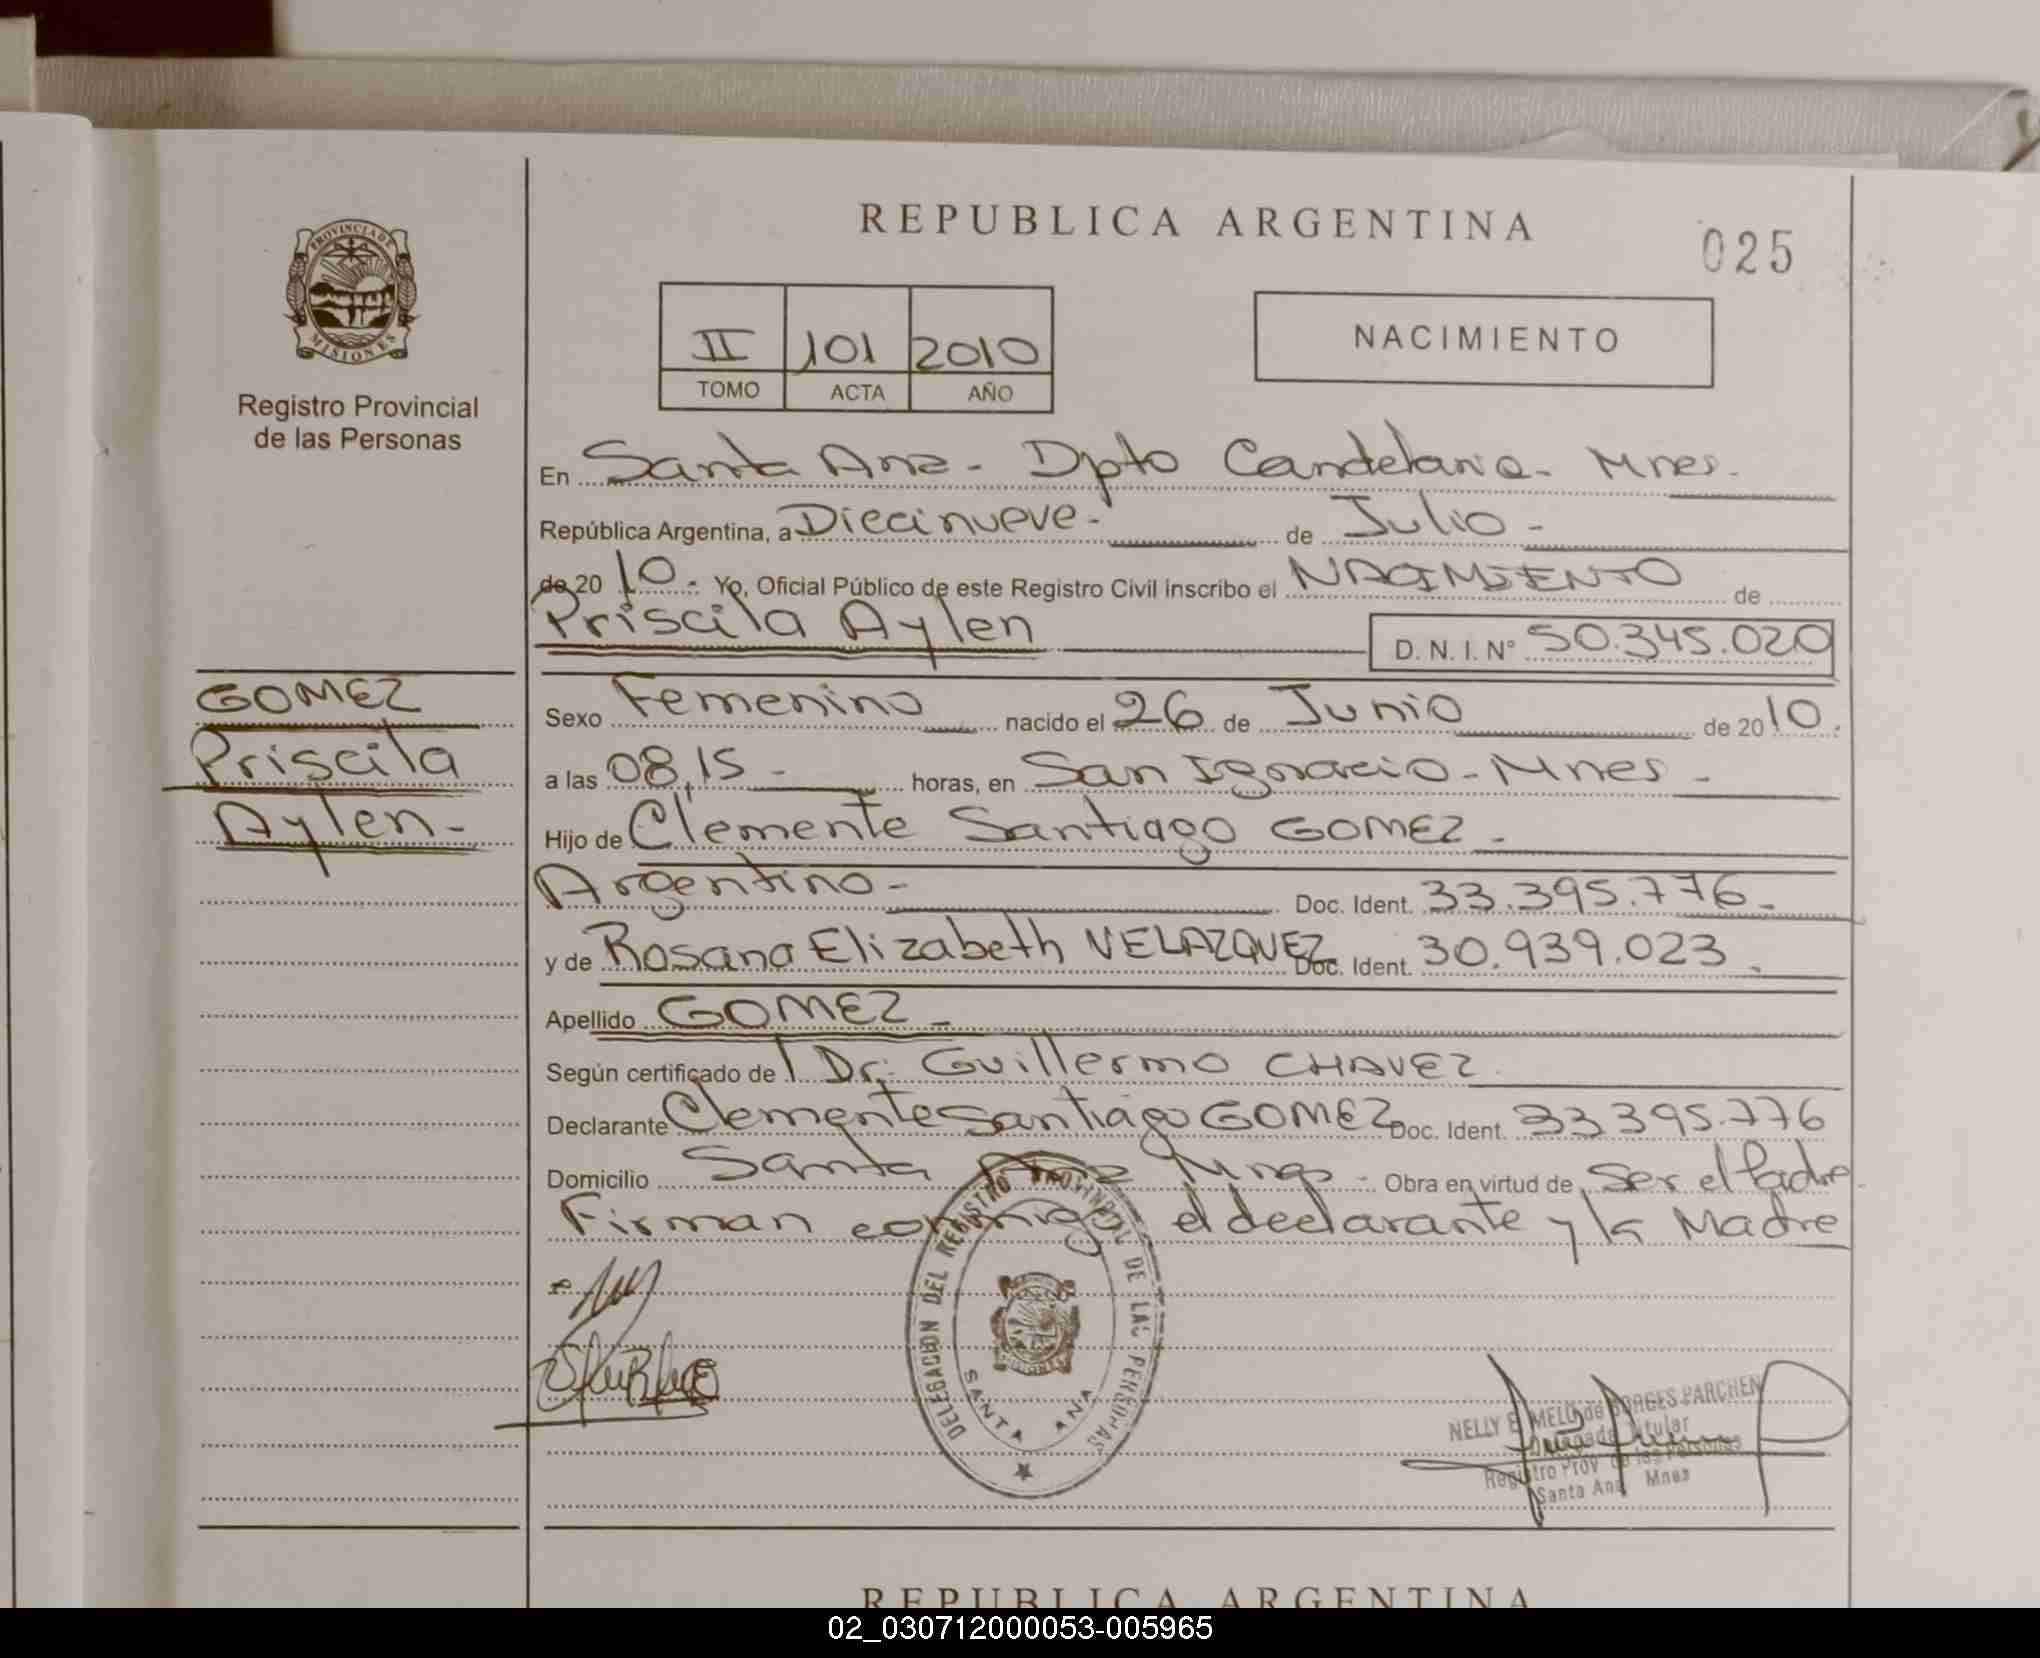 REPUBLICA ARGENTINA
025
PROVINCIA DE
MISIONES
Registro Provincial
de las Personas
II 101 2010
TOMO ACTA AÑO
NACIMIENTO
En Santa Ana - Dpto Candelaria - Mnes.
República Argentina, a Diecinueve - de Julio -
de 2010. Yo, Oficial Público de este Registro Civil inscribo el NACIMIENTO de
Priscila Aylen D. N. I. N° 50.345.020
GOMEZ
Priscila
Aylen -
Sexo Femenino nacido el 26 de Junio de 2010.
a las 08,15 - horas, en San Ignacio - Mnes -
Hijo de Clemente Santiago GOMEZ -
Argentino - Doc. Ident. 33.395.776 -
y de Rosana Elizabeth VELAZQUEZ Doc. Ident. 30.939.023
Apellido GOMEZ -
Según certificado de Dr. Guillermo CHAVEZ
Declarante Clemente Santiago GOMEZ Doc. Ident. 33 395.776
Domicilio Santa Ana Mnes - Obra en virtud de ser el Padre
Firman conmigo el declarante y la Madre
DELEGACION DEL REGISTRO PROVINCIAL DE LAS PERSONAS
SANTA ANA
NELLY E. MELO de BORGES PARCHEN
Delegada Titular
Registro Prov. de las Personas
Santa Ana Mnes
REPUBLICA ARGENTINA
02_030712000053-005965